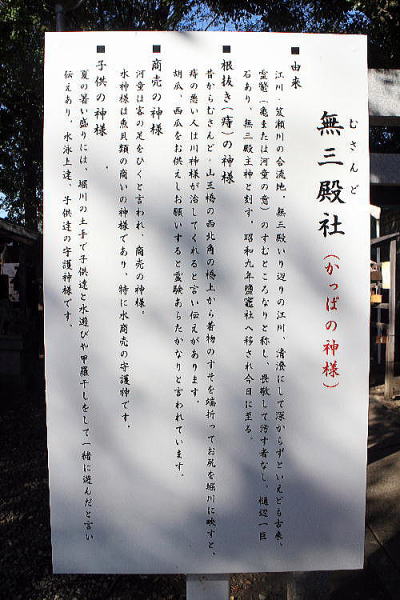 むさんど
無三殿社（かっぱの神様）
■由来
江川・笈瀬川の合流地、無三殿いり辺りの江川、清澄にして深からずといえども古来、
霊鼈（亀または河童の意）のすむところなりと称し、畏敬して汚す者なし。樋辺一巨
石あり、無三殿主神と刻す。昭和九年鹽竈社へ移され今日に至る。
■根抜き（痔）の神様
昔からむさんど・山王橋の西北角の橋上から着物のすそを端折ってお尻を堀川に映すと、
痔の悪い人は川神様が治してくれると言い伝えがあります。
胡瓜、西瓜をお供えしお願いすると霊験あらたかなりと言われています。
■商売の神様
河童は客の足をひくと言われ、商売の神様。
水神様は魚貝類の商いの神様であり、特に水商売の守護神です。
■子供の神様
夏の暑い盛りには、堀川の土手で子供達と水遊びや甲羅干しをして一緒に遊んだと言い
伝えあり、水泳上達、子供達の守護神様です。